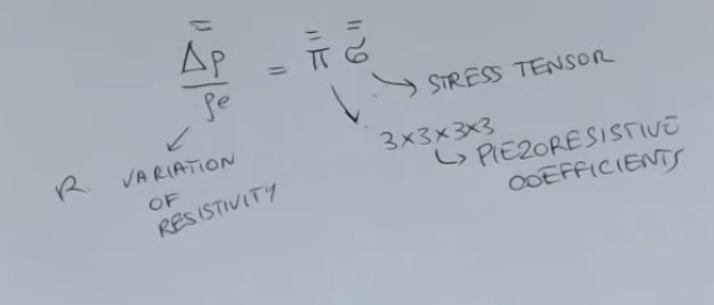 Δρ̿ / ρe = π̿ σ̿
STRESS TENSOR
3×3×3×3
PIEZORESISTIVE
COEFFICIENTS
R. VARIATION
OF
RESISTIVITY